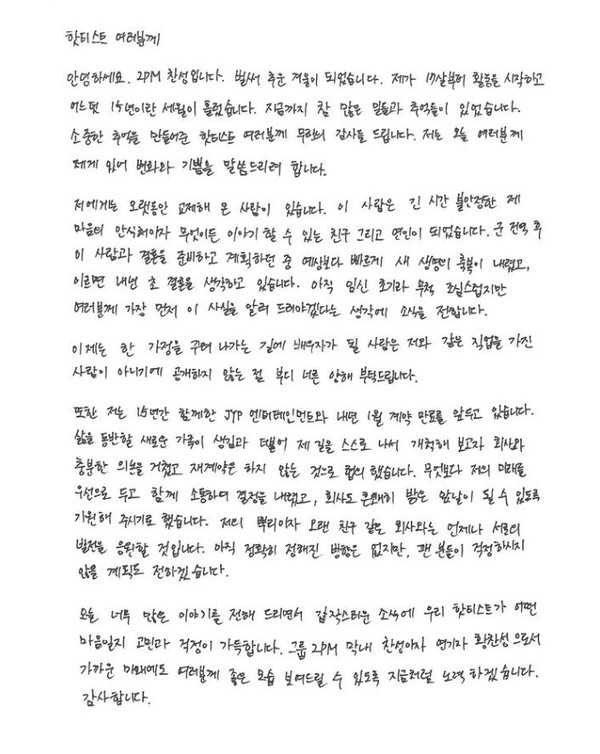 핫티스트 여러분께
안녕하세요. 2PM 찬성입니다. 벌써 추운 겨울이 되었습니다. 제가 17살부터 활동을 시작하고
어느핏 15년이란 세월이 흘렀습니다. 지금까지 참 많은 일들과 추억들이 있었습니다.
소중한 추억을 만들어준 핫티스트 여러분께 무한의 감사를 드립니다. 저는 오늘 여러분께
제게 있어 변화와 기쁨을 말씀드리려 합니다.
저에게는 오랫동안 교제해 온 사람이 있습니다. 이 사람은 긴 시간 불안정한 제
마음의 안식처이자 무엇이든 이야기 할 수 있는 친구 그리고 연인이 되었습니다. 군 전역 후
이 사람과 결혼을 준비하고 계획하던 중 예상보다 빠르게 새 생명의 축복이 내렸고,
이르면 내년 초 결혼을 생각하고 있습니다. 아직 임신 초기라 무척 조심스럽지만
여러분께 가장 먼저 이 사실을 알려 드려야겠다는 생각에 소식을 전합니다.
이제는 한 가정을 꾸려 나가는 길에 배우자가 될 사람은 저와 같은 직업을 가진
사람이 아니기에 공개하지 않는 점 부디 너른 양해 부탁드립니다.
또한 저는 15년간 함께한 JYP 엔터테인먼트와 내년 1월 계약 만료를 앞두고 있습니다.
삶을 동반할 새로운 가족이 생김과 더불어 제 길을 스스로 나서 개척해 보고자 회사와
충분한 의논을 거쳤고 재계약은 하지 않는 것으로 협의 했습니다. 무엇보다 저의 미래를
우선으로 두고 함께 소통하며 결정을 내렸고, 회사도 흔쾌히 밝은 앞날이 될 수 있도록
기원해 주시기로 했습니다. 저의 뿌리이자 오랜 친구 같은 회사와는 언제나 서로의
발전을 응원할 것입니다. 아직 정확히 정해진 방향은 없지만, 팬 분들이 걱정하시지
않을 계획도 전하겠습니다.
오늘 너무 많은 이야기를 전해 드리면서 갑작스러운 소식에 우리 핫티스트가 어떤
마음일지 고민과 걱정이 가득합니다. 그룹 2PM 막내 찬성이자 연기자 황찬성 으로서
가까운 미래에도 여러분께 좋은 모습 보여드릴 수 있도록 지금처럼 노력 하겠습니다.
감사합니다.